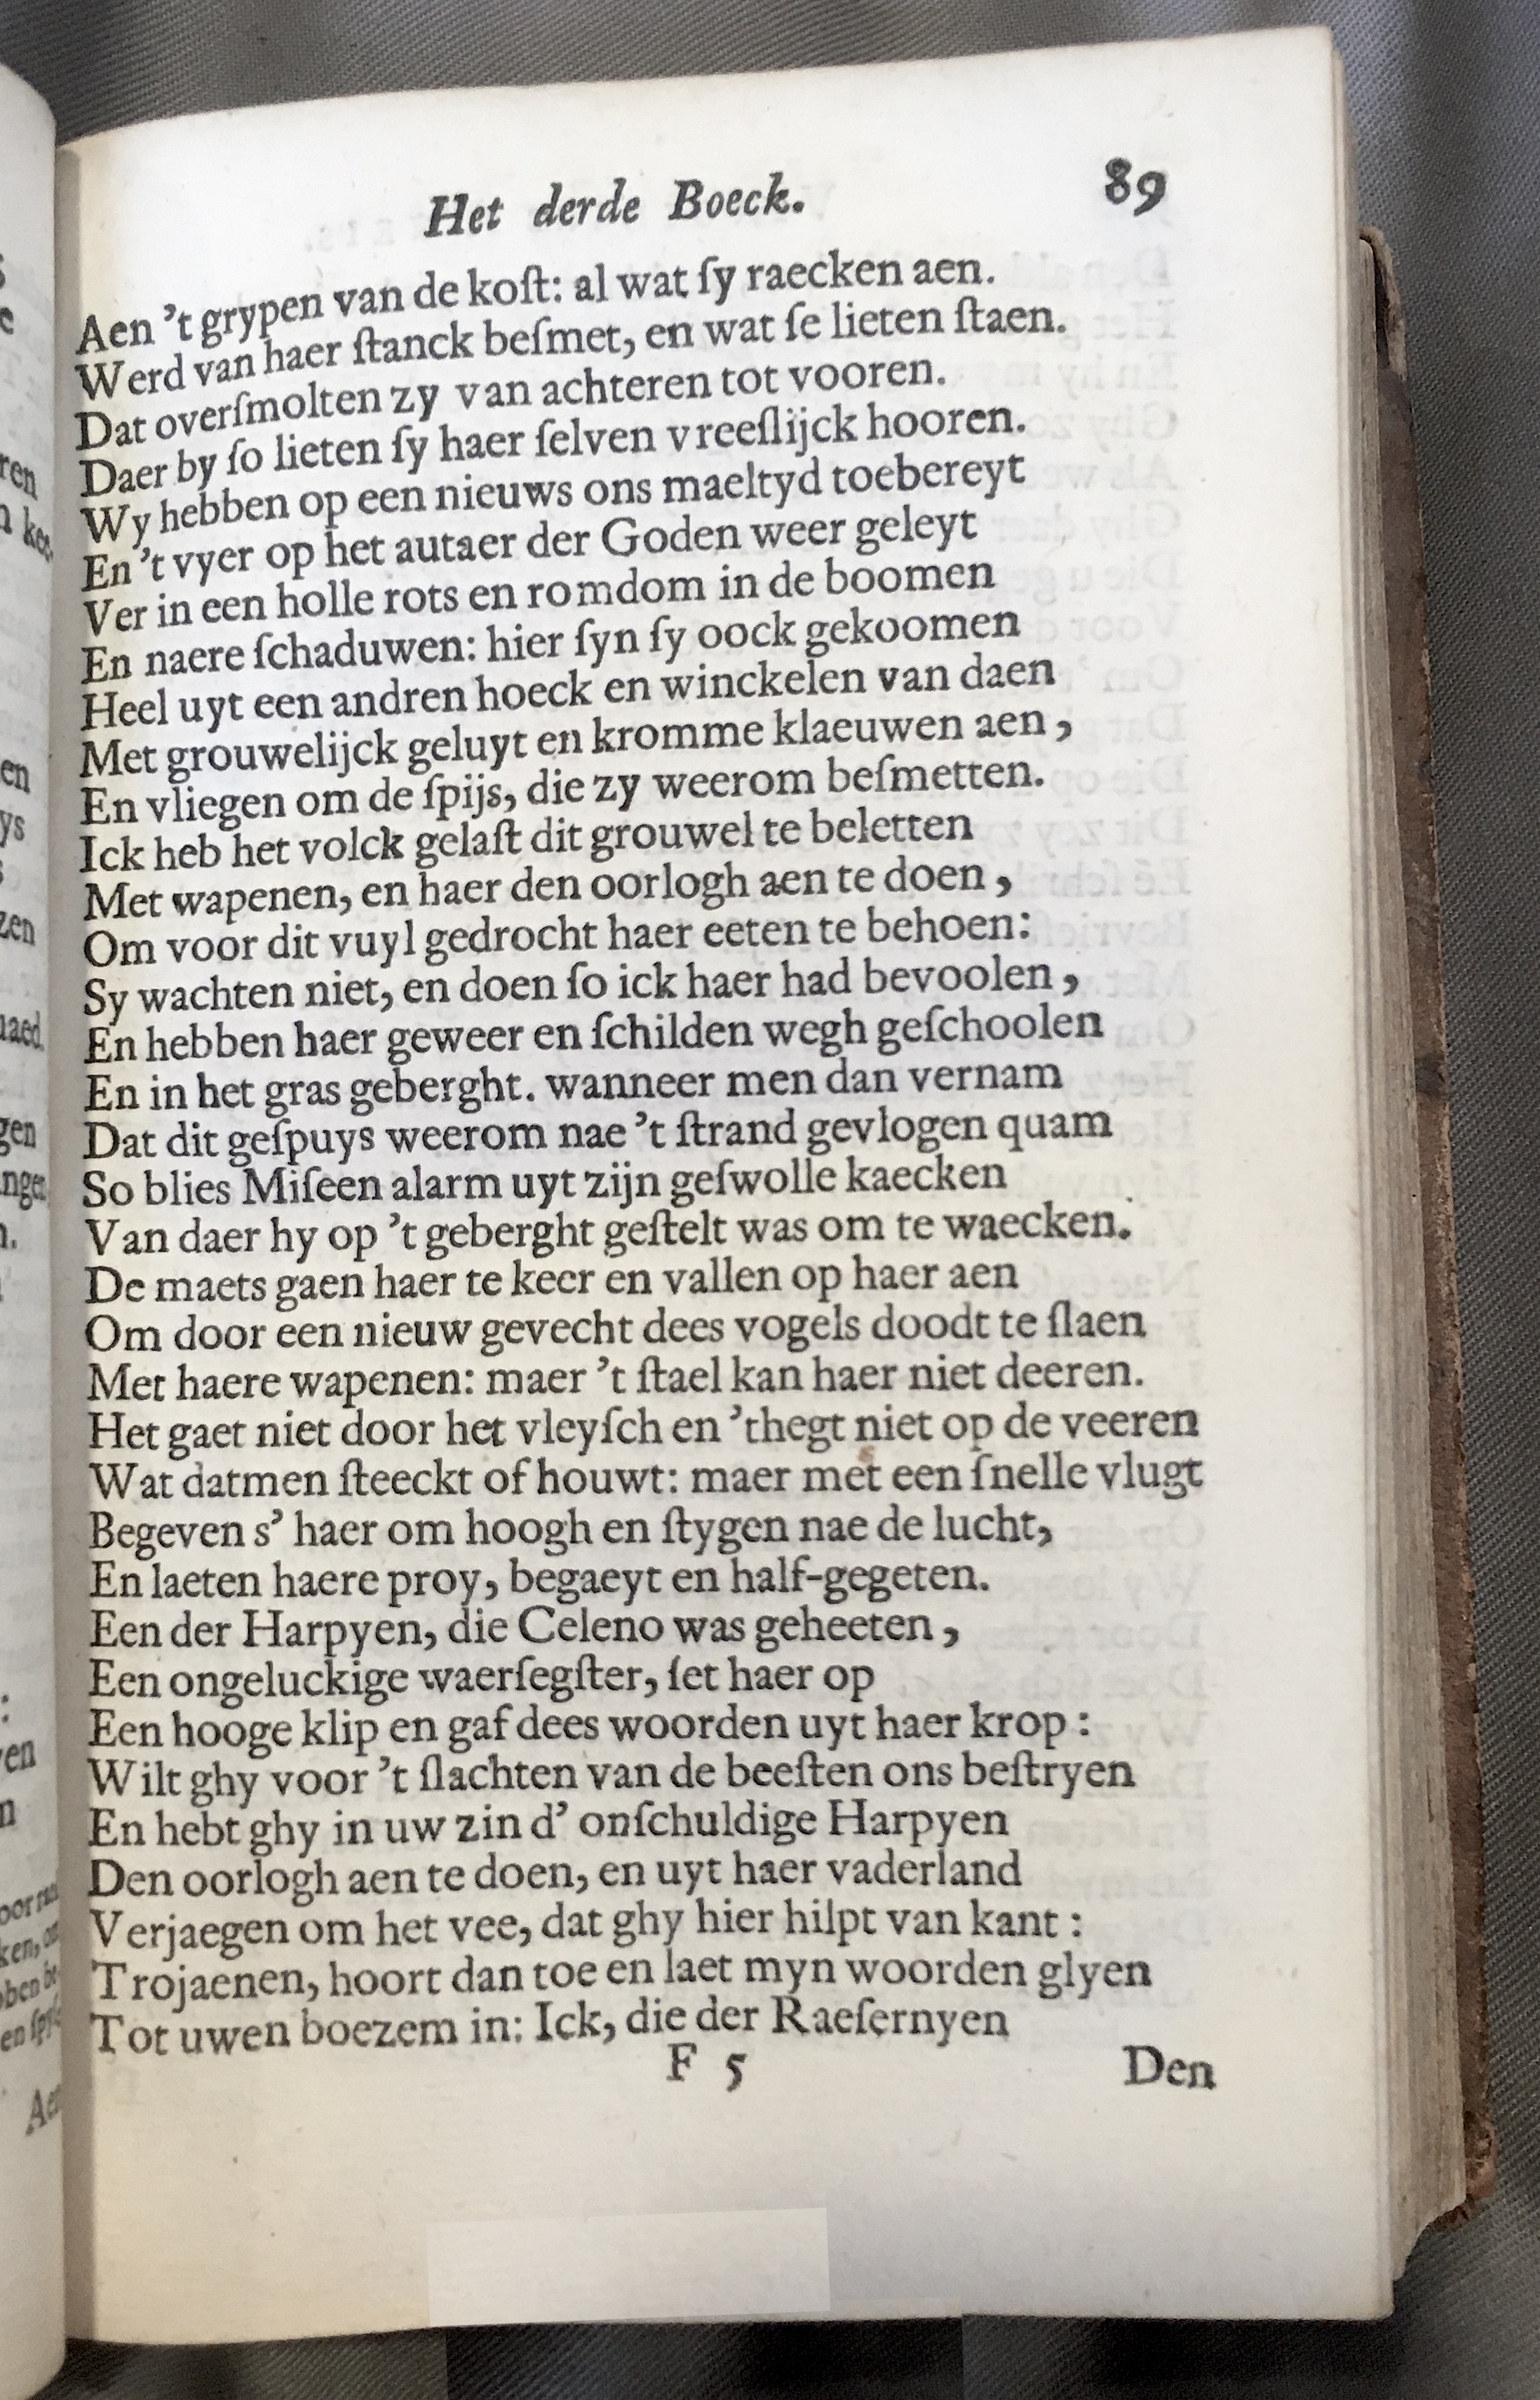 Het derde Boeck. 89
Aen 't grypen van de koſt: al wat ſy raecken aen.
Werd van haer ſtanck beſmet, en wat ſe lieten ſtaen.
Dat overſmolten zy van achteren tot vooren.
Daer by ſo lieten ſy haer ſelven vreeſlijck hooren.
Wy hebben op een nieuws ons maeltyd toebereyt
En 't vyer op het autaer der Goden weer geleyt
Ver in een holle rots en romdom in de boomen
En naere ſchaduwen: hier ſyn ſy oock gekoomen
Heel uyt een andren hoeck en winckelen van daen
Met grouwelijck geluyt en kromme klaeuwen aen,
En vliegen om de ſpijs, die zy weerom beſmetten.
Ick heb het volck gelaſt dit grouwel te beletten
Met wapenen, en haer den oorlogh aen te doen,
Om voor dit vuyl gedrocht haer eeten te behoen:
Sy wachten niet, en doen ſo ick haer had bevoolen,
En hebben haer geweer en ſchilden wegh geſchoolen
En in het gras geberght. wanneer men dan vernam
Dat dit geſpuys weerom nae 't ſtrand gevlogen quam
So blies Miſeen alarm uyt zijn geſwolle kaecken
Van daer hy op 't geberght geſtelt was om te waecken.
De maets gaen haer te keer en vallen op haer aen
Om door een nieuw gevecht dees vogels doodt te ſlaen
Met haere wapenen: maer 't ſtael kan haer niet deeren.
Het gaet niet door het vleyſch en 'thegt niet op de veeren
Wat datmen ſteeckt of houwt: maer met een ſnelle vlugt
Begeven s' haer om hoogh en ſtygen nae de lucht,
En laeten haere proy, begaeyt en half-gegeten.
Een der Harpyen, die Celeno was geheeten,
Een ongeluckige waerſegſter, ſet haer op
Een hooge klip en gaf dees woorden uyt haer krop:
Wilt ghy voor 't ſlachten van de beeſten ons beſtryen
En hebt ghy in uw zin d' onſchuldige Harpyen
Den oorlogh aen te doen, en uyt haer vaderland
Verjaegen om het vee, dat ghy hier hilpt van kant:
Trojaenen, hoort dan toe en laet myn woorden glyen
Tot uwen boezem in: Ick, die der Raeſernyen
F 5 Den